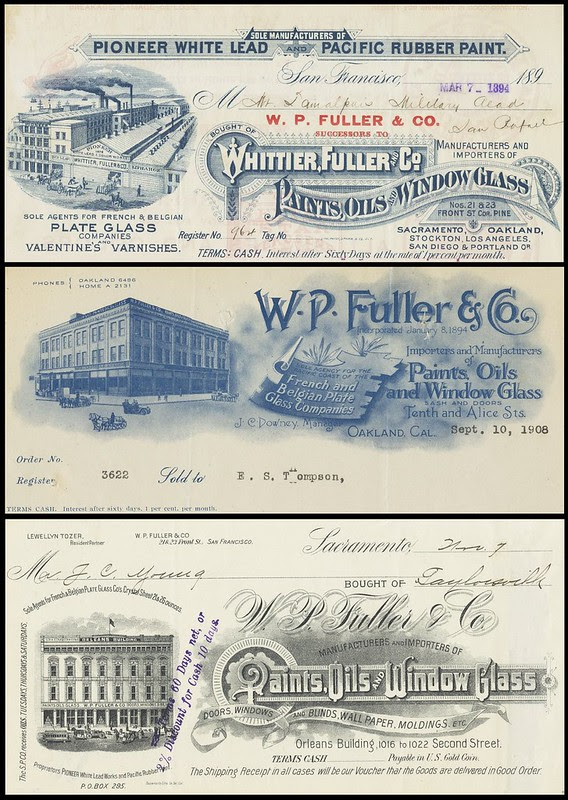 SOLE MANUFACTURERS OF
PIONEER WHITE LEAD AND PACIFIC RUBBER PAINT.
San Francisco, MAR 7_ 1894 189
M Mt. Tamalpais Military Acad
San Rafael
W. P. FULLER & CO.
SUCCESSORS TO
BOUGHT OF
WHITTIER, FULLER AND CO
MANUFACTURERS AND
IMPORTERS OF
PAINTS, OILS AND WINDOW GLASS
NOS. 21 & 23
FRONT ST. COR. PINE
WHITTIER, FULLER & CO.
SOLE AGENTS FOR FRENCH & BELGIAN
PLATE GLASS
COMPANIES
AND
VALENTINE'S VARNISHES.
SACRAMENTO, OAKLAND,
STOCKTON, LOS ANGELES,
SAN DIEGO & PORTLAND OR.
Register No. 964 Tag No
TERMS: CASH, Interest after Sixty Days at the rate of 1 per cent per month.
PHONES: OAKLAND 6486
HOME A 2131
W. P. Fuller & Co.
Incorporated January 8, 1894
Importers and Manufacturers
of
Paints, Oils
and Window Glass
SASH AND DOORS
Tenth and Alice Sts.
SOLE AGENCY FOR THE
PACIFIC COAST OF THE
French and
Belgian Plate
Glass Companies
J. C. Downey, Manager
OAKLAND, CAL. Sept. 10, 1908
Order No.
Register 3622 Sold to E. S. Thompson,
TERMS CASH. Interest after sixty days, 1 per cent. per month.
LEWELLYN TOZER,
Resident Partner
W. P. FULLER & CO
21 & 23 Front St., SAN FRANCISCO.
Sacramento, Nov. 9
Mr J. C. Young
BOUGHT OF Taylorsville
W. P. Fuller & Co.
MANUFACTURERS AND IMPORTERS OF
Paints, Oils AND Window Glass
DOORS, WINDOWS AND BLINDS, WALL PAPER, MOLDINGS, ETC.
Orleans Building, 1016 to 1022 Second Street.
TERMS CASH Payable in U.S. Gold Coin.
The Shipping Receipt in all cases will be our Voucher that the Goods are delivered in Good Order.
Sole Agents for French & Belgian Plate Glass Co's Crystal Sheet 21 & 26 ounces.
ORLEANS BUILDING
W. P. FULLER & CO
60 Days net, or
2% Discount for Cash 10 days.
Proprietors PIONEER White Lead Works and Pacific Rubber
P.O. BOX 285.